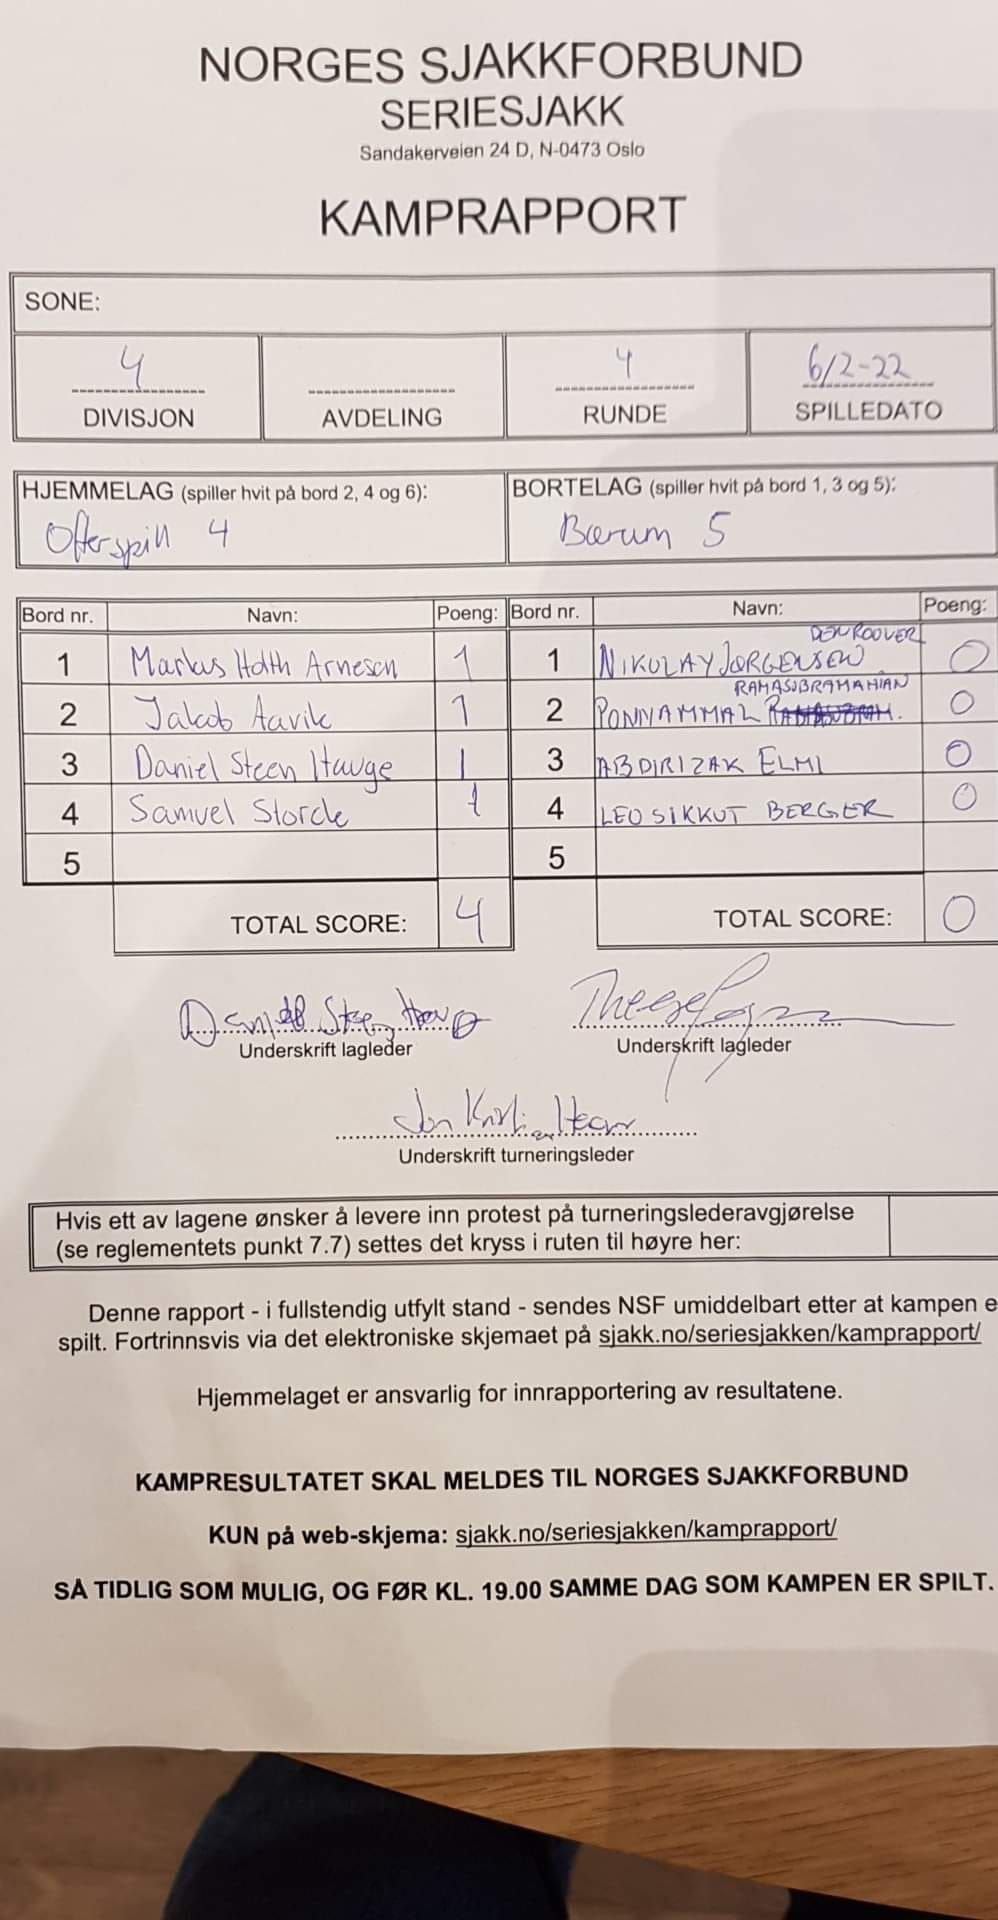 NORGES SJAKKFORBUND
SERIESJAKK
Sandakerveien 24 D, N-0473 Oslo
KAMPRAPPORT
SONE:
4 4 6/2-22
DIVISJON AVDELING RUNDE SPILLEDATO
HJEMMELAG (spiller hvit på bord 2, 4 og 6): BORTELAG (spiller hvit på bord 1, 3 og 5):
Offerspill 4 Bærum 5
Bord nr. Navn: Poeng: Bord nr. Navn: Poeng:
DEN ROOVER
1 Markus Hoth Arnesen 1 1 NIKOLAY JØRGENSEN 0
RAMASUBRAMANIAN
2 Jakob Aavik 1 2 PONNAMMAL 0
3 Daniel Steen Hauge 1 3 ABDIRIZAK ELMI 0
4 Samuel Storde 1 4 LEO SIKKUT BERGER 0
5 5
TOTAL SCORE: 4 TOTAL SCORE: 0
Underskrift lagleder Underskrift lagleder
Jon Kristian
Underskrift turneringsleder
Hvis ett av lagene ønsker å levere inn protest på turneringslederavgjørelse
(se reglementets punkt 7.7) settes det kryss i ruten til høyre her:
Denne rapport - i fullstendig utfylt stand - sendes NSF umiddelbart etter at kampen e
spilt. Fortrinnsvis via det elektroniske skjemaet på sjakk.no/seriesjakken/kamprapport/
Hjemmelaget er ansvarlig for innrapportering av resultatene.
KAMPRESULTATET SKAL MELDES TIL NORGES SJAKKFORBUND
KUN på web-skjema: sjakk.no/seriesjakken/kamprapport/
SÅ TIDLIG SOM MULIG, OG FØR KL. 19.00 SAMME DAG SOM KAMPEN ER SPILT.